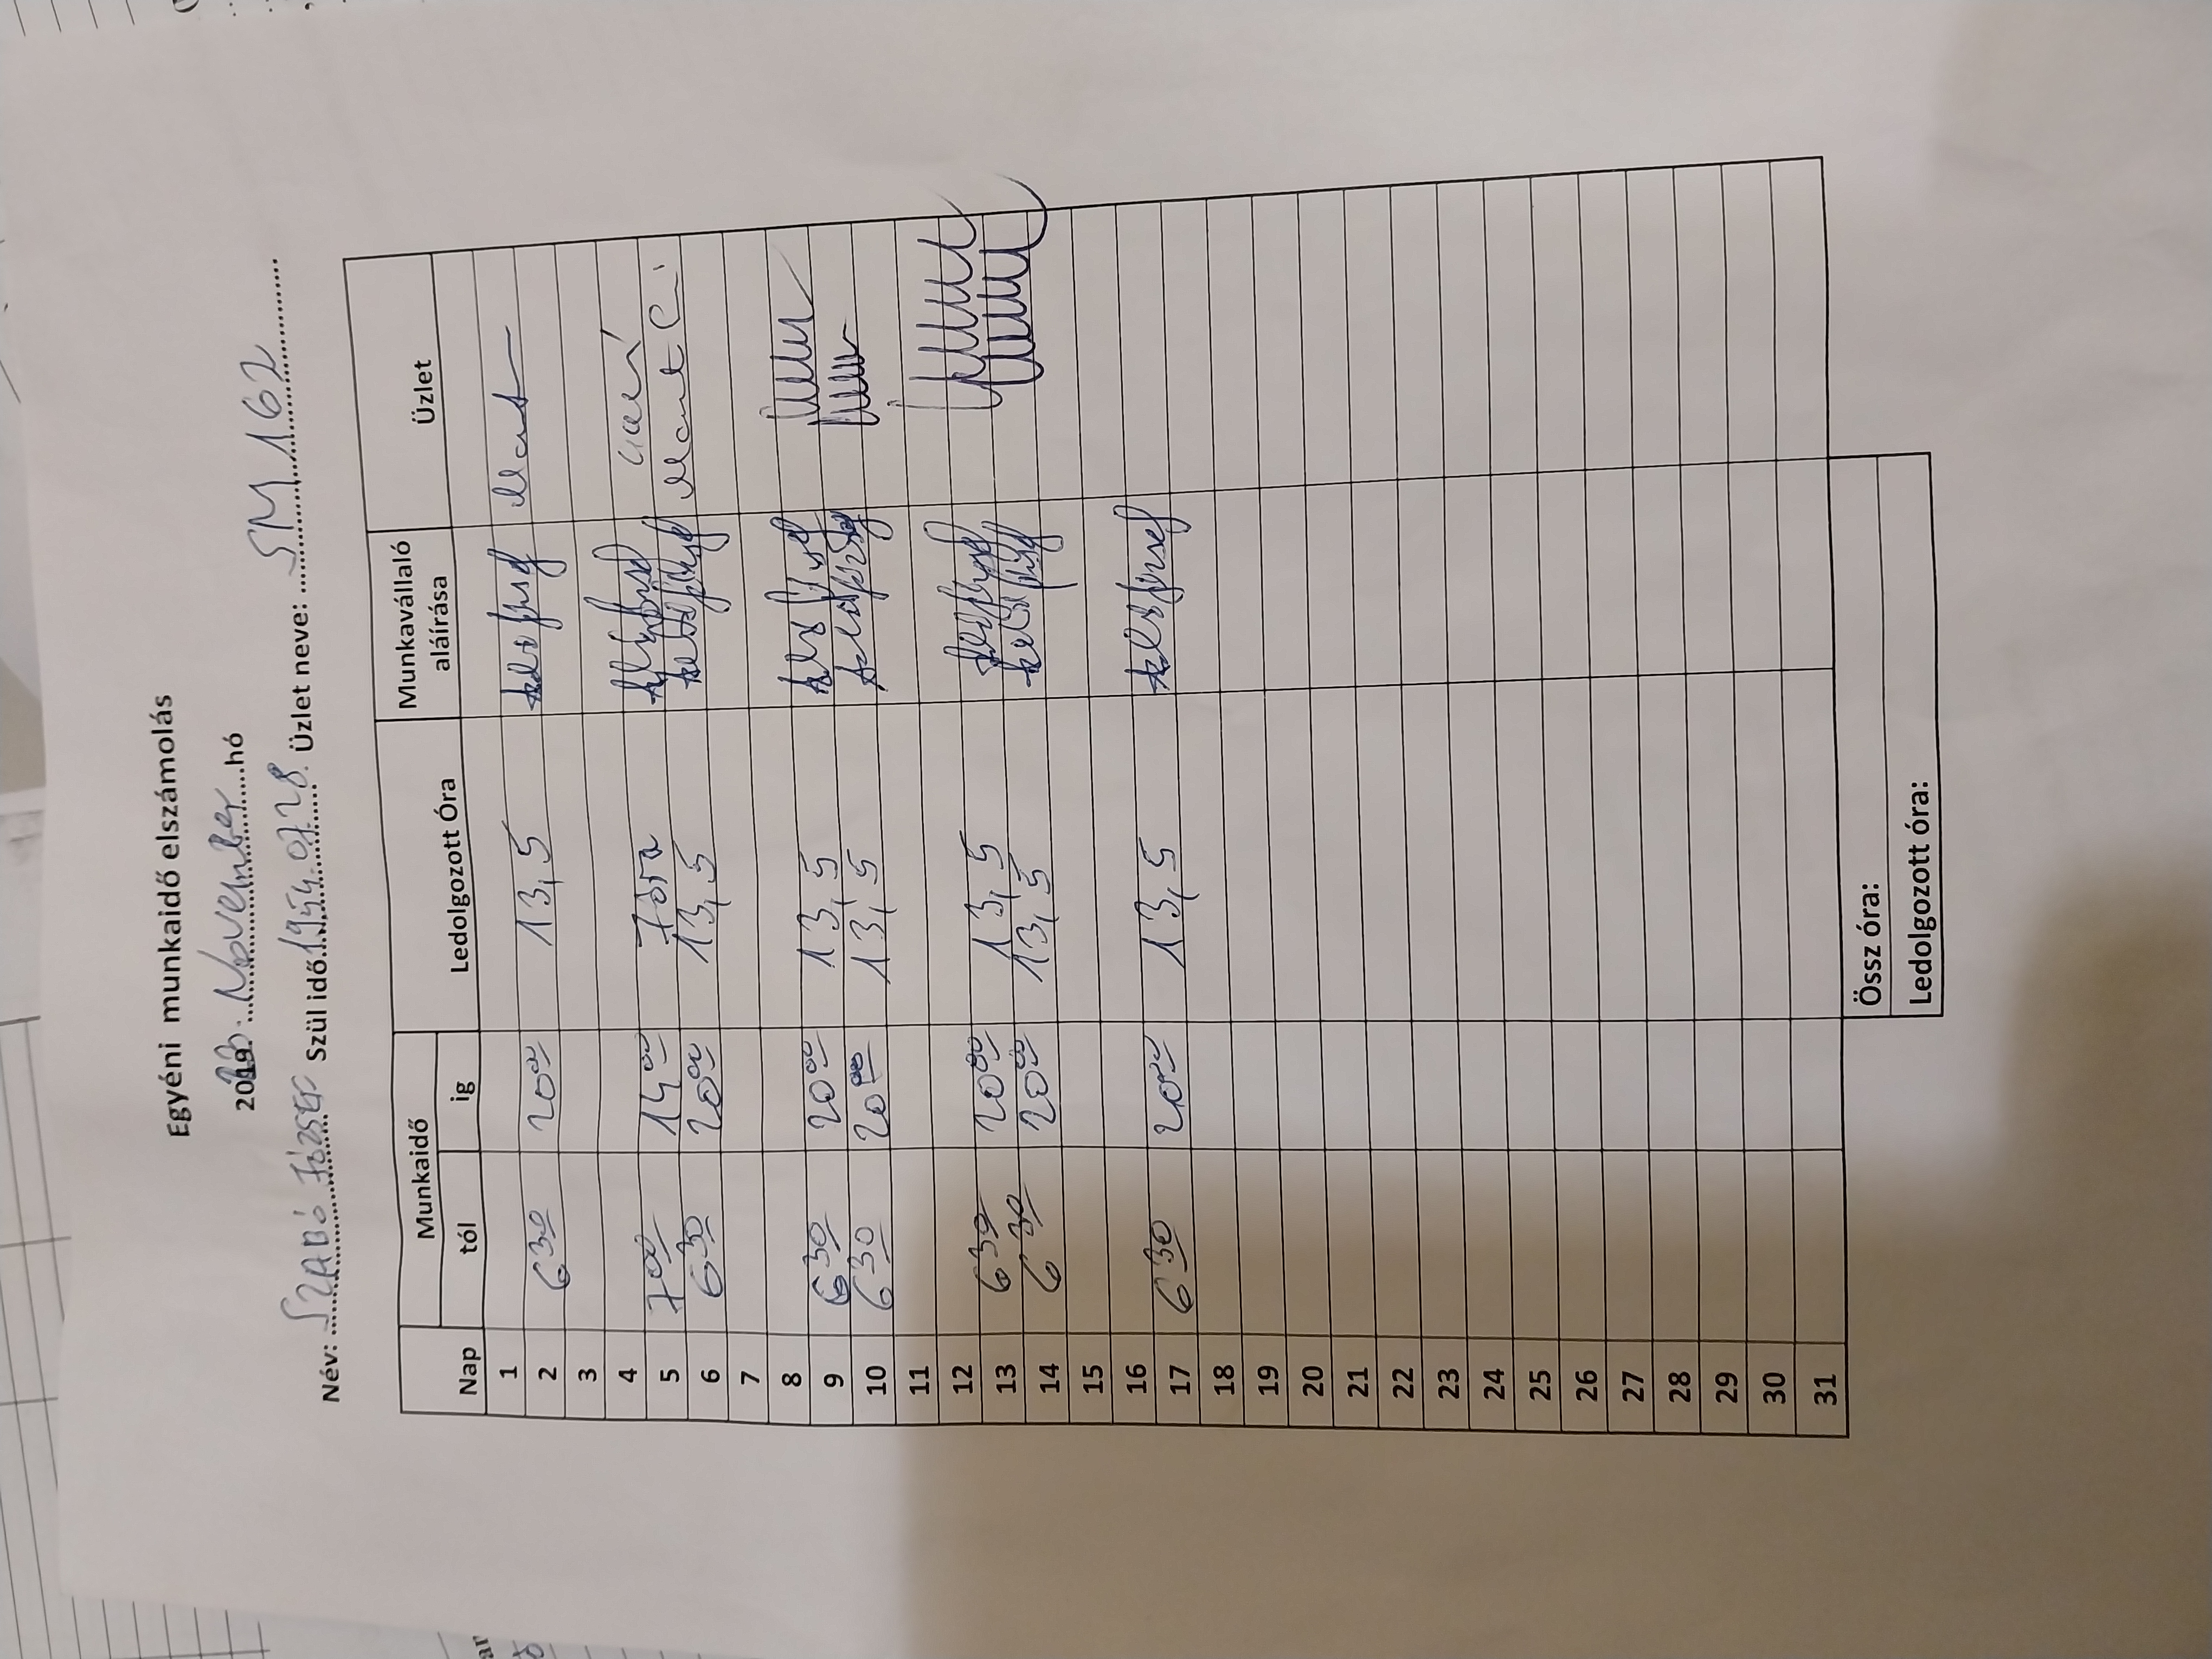 Egyéni munkaidő elszámolás
2023. November hó
Név: SZABÓ JÓZSEF Szül idő 1954.07.28. Üzlet neve: SM 162
Munkaidő Ledolgozott Óra Munkavállaló aláírása Üzlet
Nap tól ig
1
2 6 30 20 00 13,5
3
4
5 7 00 14 00 7 óra
6 6 30 20 00 13,5
7
8
9 6 30 20 00 13,5
10 6 30 20 00 13,5
11
12
13 6 30 20 00 13,5
14 6 30 20 00 13,5
15
16
17 6 30 20 00 13,5 Szabó József
18
19
20
21
22
23
24
25
26
27
28
29
30
31
Össz óra:
Ledolgozott óra: